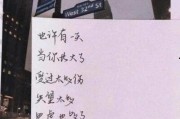 West 42nd St
也许有一天
当你长大了
受过太多伤
失望太多